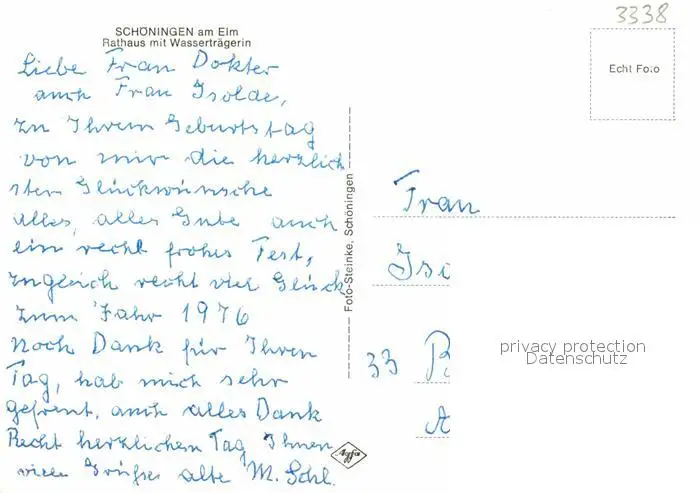 3338
SCHÖNINGEN am Elm
Rathaus mit Wasserträgerin
Echt Foto
Liebe Frau Dokter
auch Frau Isolde,
zu Ihrem Geburtstag
von mir die herzlich
sten Glückwünsche
alles, alles Gute auch
ein recht frohes Fest,
zugleich recht viel Glück
zum Jahr 1976
Noch Dank für Ihren
Tag, hab mich sehr
gefreut, auch alles Dank
Recht herzlichen Tag Ihnen
viele Grüße alte M. Schl.
Foto-Steinke, Schöningen
Agfa
Frau
Isi
33 B
A
privacy protection
Datenschutz